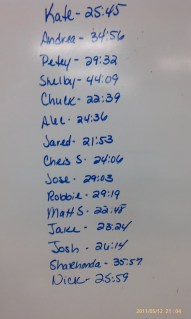 Kate - 25:45
Andrea - 34:56
Petey - 29:32
Shelby - 44:09
Chuck - 22:39
Alec - 24:36
Jared - 21:53
Chris S - 24:06
Jose - 29:03
Robbie - 29:19
Matt S - 22:48
Jake - 23:24
Josh - 26:14
Sharhonda - 35:57
Nick - 25:59
2011/05/12 21:04